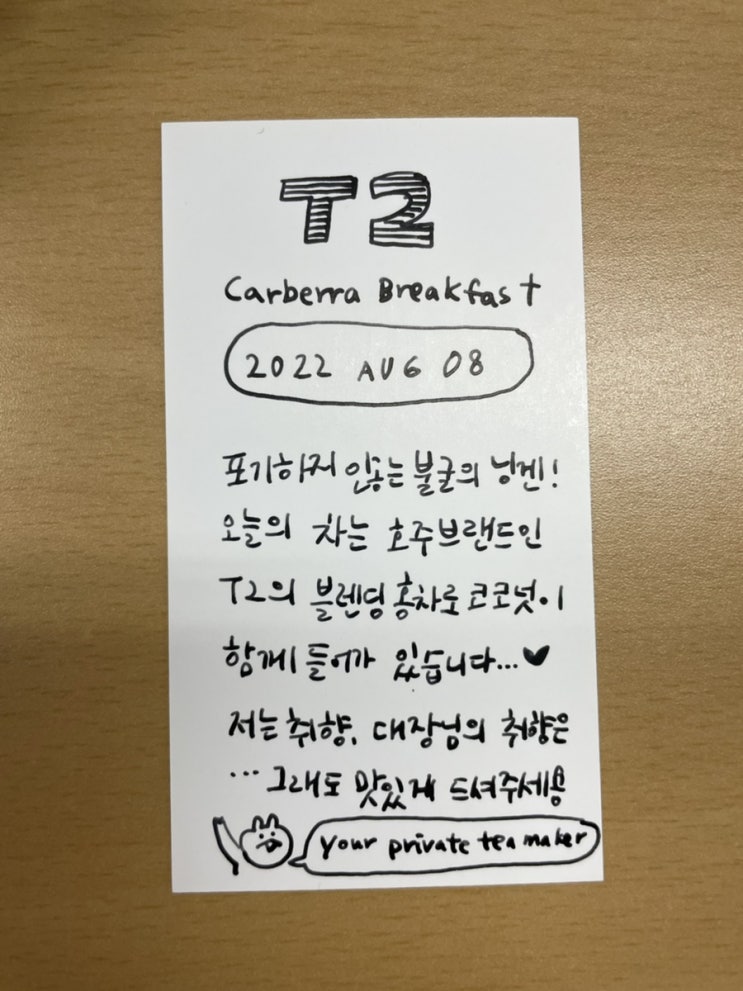 T2
Carberra Breakfast
2022 AUG 08
포기하지 않는 불굴의 닝겐!
오늘의 차는 호주브랜드인
T2의 블렌딩 홍차로 코코넛이
함께 들어가 있습니다...♥
저는 취향, 대장님의 취향은
... 그래도 맛있게 드셔주세용
your private tea maker